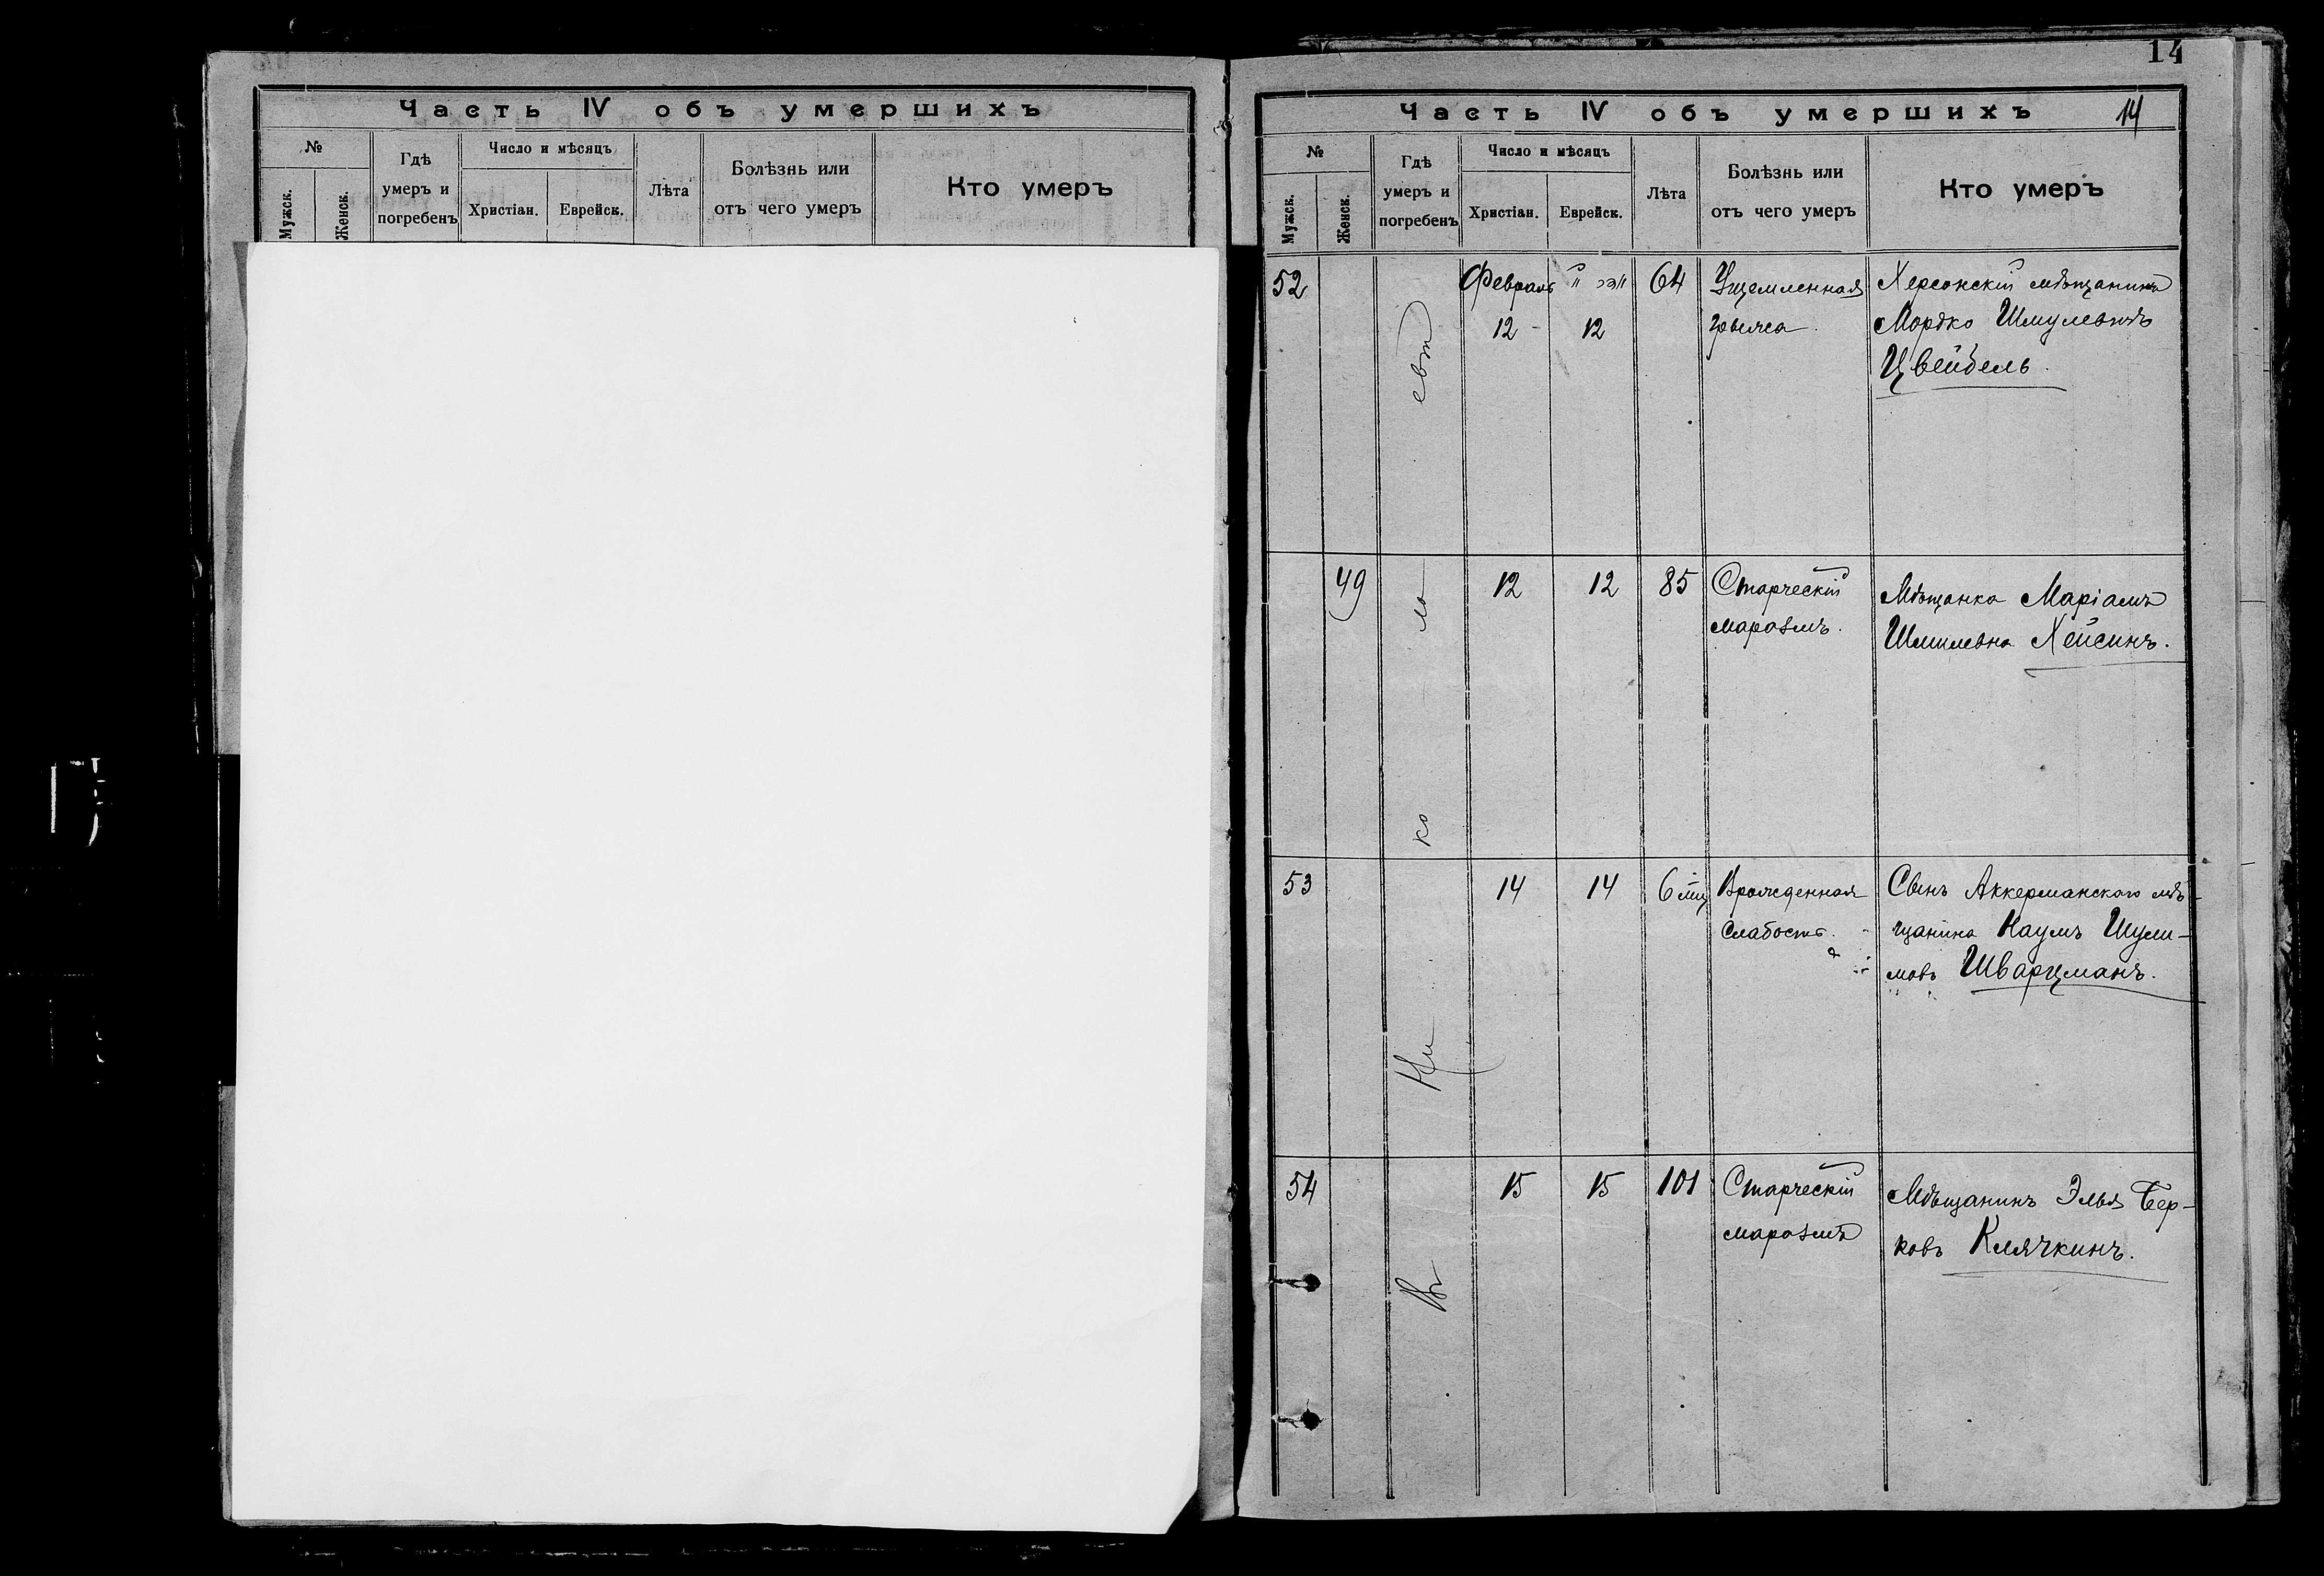 14
Часть IV объ умершихъ
№
Мужск.
Женск.
Гдѣ
умеръ и
погребенъ
Число и мѣсяцъ
Христіан.
Еврейск.
Лѣта
Болѣзнь или
отъ чего умеръ
Кто умеръ
Часть IV объ умершихъ
14
№
Мужск.
Женск.
Гдѣ
умеръ и
погребенъ
Число и мѣсяцъ
Христіан.
Еврейск.
Лѣта
Болѣзнь или
отъ чего умеръ
Кто умеръ
Въ Ни ко ла евѣ
52
Февраль
12
12
64
Ущемленная
грыжа.
Херсонскій мѣщанинъ
Мордко Шмулевичъ
Цвейбель.
49
12
12
85
Старческій
маразмъ.
Мѣщанка Маріамъ
Шмилевна Хейсинъ.
53
14
14
6 мц
Врожденная
слабость.
Сынъ Аккерманскаго мѣ-
щанина Наумъ Шули-
мовъ Шварцманъ.
54
15
15
101
Старческій
маразмъ
Мѣщанинъ Элья Бер-
ковъ Клячкинъ.